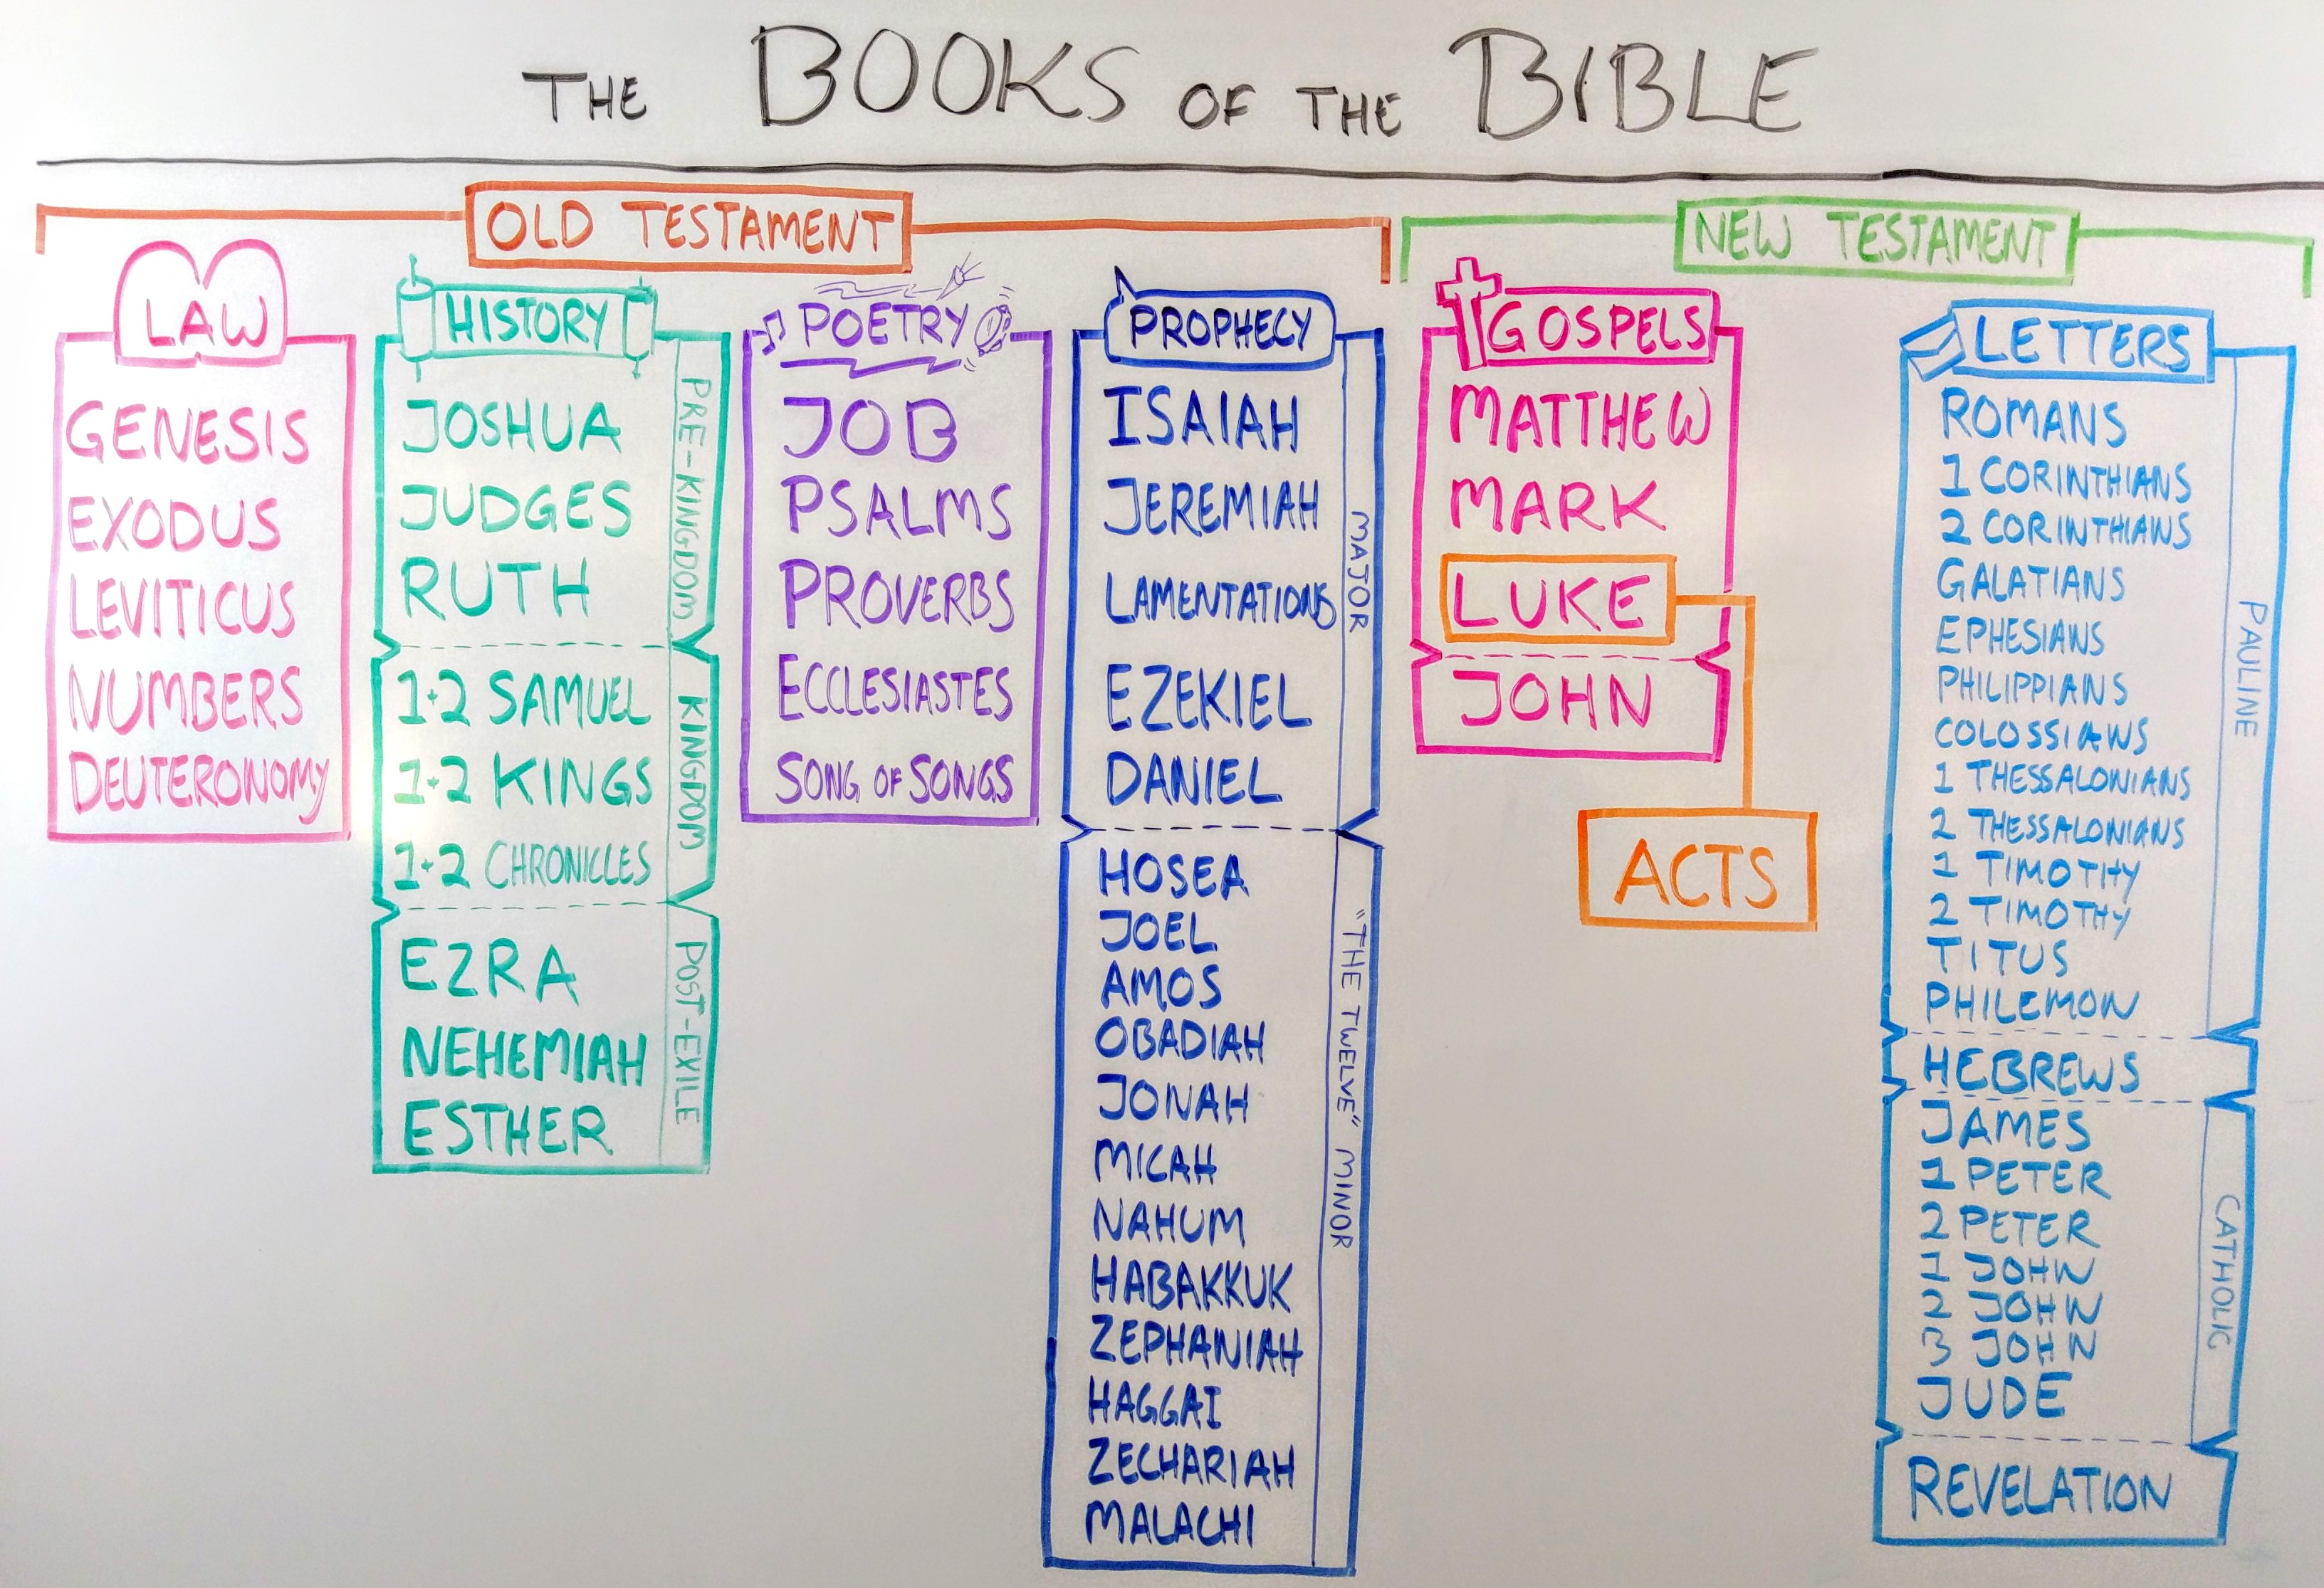 THE BOOKS OF THE BIBLE
OLD TESTAMENT
LAW
GENESIS
EXODUS
LEVITICUS
NUMBERS
DEUTERONOMY
HISTORY
PRE-KINGDOM
JOSHUA
JUDGES
RUTH
KINGDOM
1+2 SAMUEL
1+2 KINGS
1+2 CHRONICLES
POST-EXILE
EZRA
NEHEMIAH
ESTHER
POETRY
JOB
PSALMS
PROVERBS
ECCLESIASTES
SONG OF SONGS
PROPHECY
MAJOR
ISAIAH
JEREMIAH
LAMENTATIONS
EZEKIEL
DANIEL
"THE TWELVE" MINOR
HOSEA
JOEL
AMOS
OBADIAH
JONAH
MICAH
NAHUM
HABAKKUK
ZEPHANIAH
HAGGAI
ZECHARIAH
MALACHI
NEW TESTAMENT
GOSPELS
MATTHEW
MARK
LUKE
JOHN
ACTS
LETTERS
PAULINE
ROMANS
1 CORINTHIANS
2 CORINTHIANS
GALATIANS
EPHESIANS
PHILIPPIANS
COLOSSIANS
1 THESSALONIANS
2 THESSALONIANS
1 TIMOTHY
2 TIMOTHY
TITUS
PHILEMON
HEBREWS
CATHOLIC
JAMES
1 PETER
2 PETER
1 JOHN
2 JOHN
3 JOHN
JUDE
REVELATION